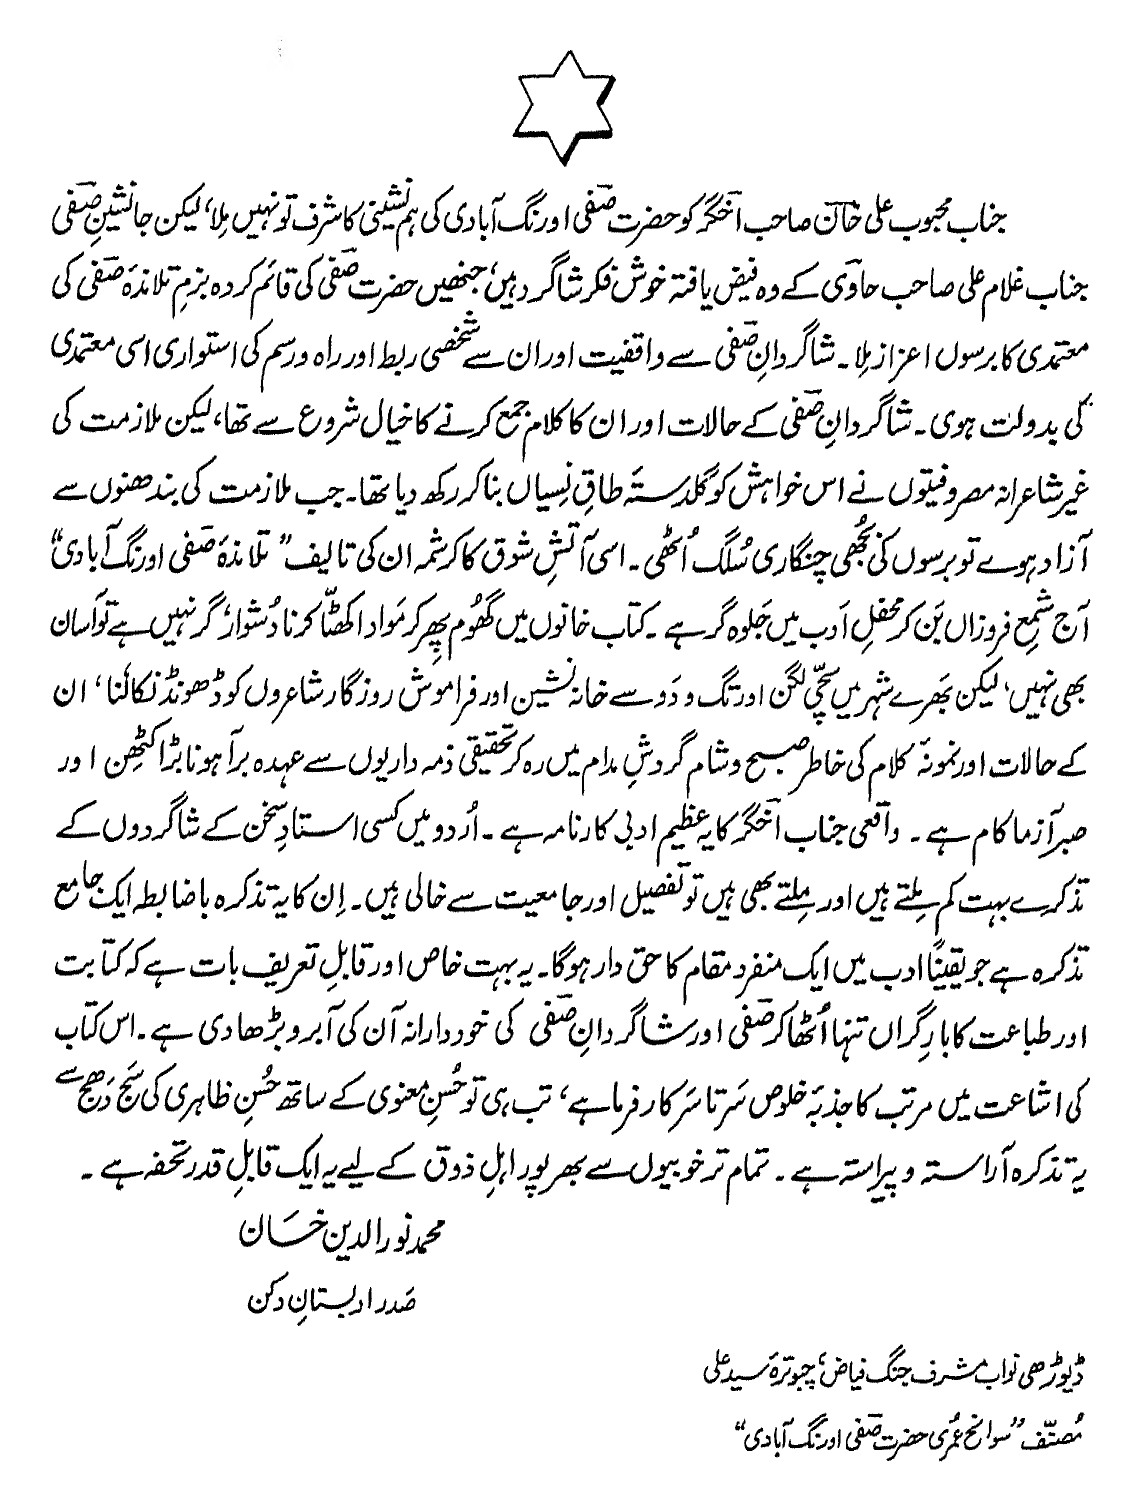 جناب محبوب علی خان صاحب اخگر کو حضرت صفی اورنگ آبادی کی ہم نشینی کا شرف تو نہیں مِلا، لیکن جانشینِ صفی
جناب غلام علی صاحب حاوی کے وہ فیض یافتہ خوش فکر شاگرد ہیں، جنھیں حضرت صفی کی قائم کردہ بزمِ تلامذۂ صفی کی
معتمدی کا برسوں اعزاز مِلا۔ شاگردانِ صفی سے واقفیت اور ان سے شخصی ربط اور راہ ورسم کی استواری اسی معتمدی
کی بدولت ہوی۔ شاگردانِ صفی کے حالات اور ان کا کلام جمع کرنے کا خیال شروع سے تھا، لیکن ملازمت کی
غیر شاعرانہ مصروفیتوں نے اس خواہش کو گلدستۂ طاقِ نِسیاں بنا کر رکھ دیا تھا۔ جب ملازمت کی بندھنوں سے
آزاد ہوے تو برسوں کی بُجھی چنگاری سُلگ اُٹھی۔ اسی آتشِ شوق کا کرشمہ ان کی تالیف "تلامذۂ صفی اورنگ آبادی"
آج شمعِ فروزاں بَن کر محفلِ اَدب میں جَلوہ گر ہے۔ کتاب خانوں میں گھُوم پِھر کر مَواد اِکھٹّا کرنا دُشوار گر نہیں ہے تو آسان
بھی نہیں، لیکن بھَرے شہر میں سچّی لگن اور تگ و دَو سے خانہ نشین اور فراموش روزگار شاعروں کو ڈھونڈ نکالنا، ان
کے حالات اور نمونۂ کلام کی خاطر صبح و شام گردشِ مدام میں رہ کر تحقیقی ذمہ داریوں سے عہدہ برآ ہونا بڑا کٹھِن اور
صبر آزما کام ہے۔ واقعی جناب اخگر کا یہ عظیم ادبی کارنامہ ہے۔ اُردو میں کسی استادِ سخن کے شاگردوں کے
تذکرے بہت کم مِلتے ہیں اور مِلتے بھی ہیں تو تفصیل اور جامعیت سے خالی ہیں۔ اِن کا یہ تذکرہ باضابطہ ایک جامع
تذکرہ ہے جو یقیناً ادب میں ایک منفرد مقام کا حق دار ہوگا۔ یہ بہت خاص اور قابلِ تعریف بات ہے کہ کتابت
اور طباعت کا بارِ گراں تنہا اُٹھا کر صفی اور شاگردانِ صفی کی خوددارانہ آن کی آبرو بڑھادی ہے۔ اس کتاب
کی اشاعت میں مرتب کا جذبۂ خلوص سَرتاسَر کارفرما ہے، تب ہی تو حُسنِ معنوی کے ساتھ حُسنِ ظاہری کی سَج دَھج سے
یہ تذکرہ آراستہ و پیراستہ ہے۔ تمام تر خوبیوں سے بھرپور اہلِ ذوق کے لیے یہ ایک قابلِ قدر تحفہ ہے۔
محمد نور الدین خان
صَدر ادبستانِ دکن
ڈیوڑھی نواب مشرف جنگ فیاض، چبوترہ سید علی
مُصنّف "سوانح عُمری حضرت صفی اورنگ آبادی"